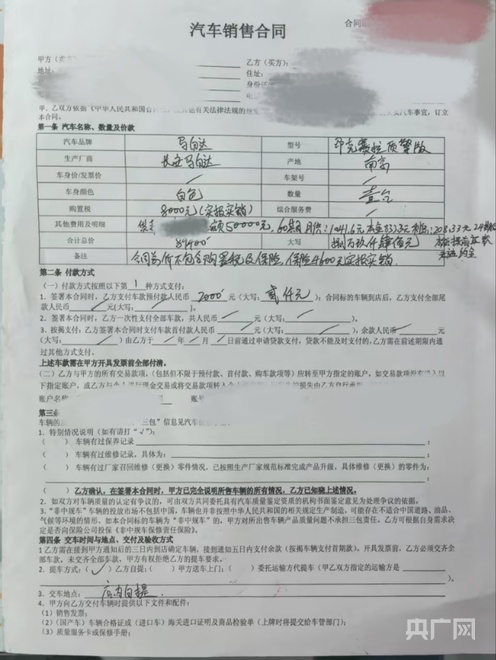 汽车销售合同
合同
甲方（卖方
乙方（买方）：
地址：
住址：
甲、乙双方依据《中华人民共和国
有关法律法规的
汽车事宜，订立
本合同。
第一条 汽车名称、数量及价款
汽车品牌 马自达 型号 昂克赛拉 质擎版
生产厂商 长安马自达 产地 南京
车身价/发票价 / 车架号 /
车身颜色 白色 数量 壹台
购置税 8000元(实报实销) 综合服务费 /
其他费用及明细 50000元,
合计总价 89400 大写 捌万玖仟肆佰元
备注 合同总价不包含购置税及保险, 保险4600元实报实销
第二条 付款方式
（一）付款方式按照以下第 1 种方式支付：
1、签署本合同时，乙方支付车款预付款人民币 2000 元（大写： 贰仟元 ）；合同标的车辆到店后，乙方支付全部尾
款人民币 / 元(大写： / )。
2、签署本合同时，乙方一次性支付全部车款，共人民币 / 元（大写： / ）。
3、按揭支付：乙方签署本合同时支付车款首付款人民币 / 元（大写： / ），余款人民币 / 元
（大写： / ）由乙方于 / 年 / 月 / 日前通过申请贷款支付，贷款不能及时支付的,乙方需在前述期限内通
过其他方式支付。
上述车款需在甲方开具发票前全部付清。
（二）乙方与甲方的所有交易款项，（包括但不限于预付款、首付款、购车款项等）应转至甲方指定的账户，如交易款项
下指定账户，或乙方与
账户名称
账号
第三条
车辆的
三包”信息见汽车
1、特别情况说明（如有请打“√”）：
（ ）车辆有过保养记录
（ ）车辆有过维修记录，具体为：
（ ）车辆有过厂家召回维修（更换）零件情况，已按照生产厂家规范标准完成产品升级，具体维修（更换）的零件为：
（ ）乙方确认，在签署本合同时，甲方已完全说明所售车辆的所有情况，乙方已知晓上述情况。
2、如双方对车辆质量的认定有争议的，可由双方共同委托具有汽车质量鉴定资质的机构书面鉴定意见为处理争议的依据。
3、“非中规车”的投放市场不包括中国，车辆也并非按照中华人民共和国的相关规定生产制造，可能存在不适合中国道路、油品、
气候等环境的情形。如本合同标的车辆为“非中规车”的，甲方对所出售车辆产品质量问题不承担三包责任，乙方可根据自身需求决
定是否向保险公司投保《非中规车维修责任保险》。
第四条 交车时间与地点、交付及验收方式
1乙方需在接到甲方通知后的三日内到店确定车辆，接到通知五日内支付余款（按揭车辆支付首期款），并具发票前，乙方必须交齐全
部车款，未交齐全部车款，甲方有权拒绝乙方的提车要求。
2、提车方式：（ √ ）乙方自提； （ ）甲方送车上门； （ ）委托运输方代提车（甲乙双方指定的运输方是
）
3、交车地点： 店内自提
4、甲方向乙方交付车辆时提供以下文件和配件：
（1）销售发票；
（2）（国产车）车辆合格证或（进口车）海关进口证明及商品检验单（上牌时将提交给车管部门）；
（3）质量服务卡或保修手册；
央广网